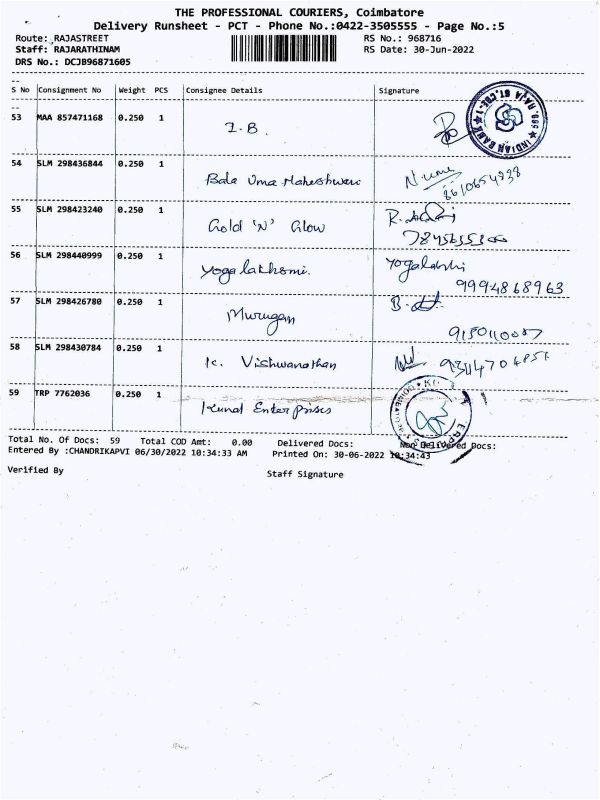 THE PROFESSIONAL COURIERS, Coimbatore
Delivery Runsheet - PCT - Phone No.:0422-3505555 - Page No.:5
Route: RAJASTREET RS No.: 968716
Staff: RAJARATHINAM RS Date: 30-Jun-2022
DRS No.: DCJB96871605
S No Consignment No Weight PCS Consignee Details Signature
53 MAA 857471168 0.250 1 I.B.
INDIAN BANK
54 SLM 298436844 0.250 1 Bala Uma Maheshwari
8610654938
55 SLM 298423240 0.250 1 Gold 'N' Glow
56 SLM 298440999 0.250 1 Yogalakshmi.
9994868963
57 SLM 298426780 0.250 1 Murugan
58 SLM 298430784 0.250 1 K. Vishwanathan
59 TRP 7762036 0.250 1 Kunal Enterprises
Total No. Of Docs: 59 Total COD Amt: 0.00 Delivered Docs: Non Delivered Docs:
Entered By :CHANDRIKAPVI 06/30/2022 10:34:33 AM Printed On: 30-06-2022 10:34:43
Verified By
Staff Signature